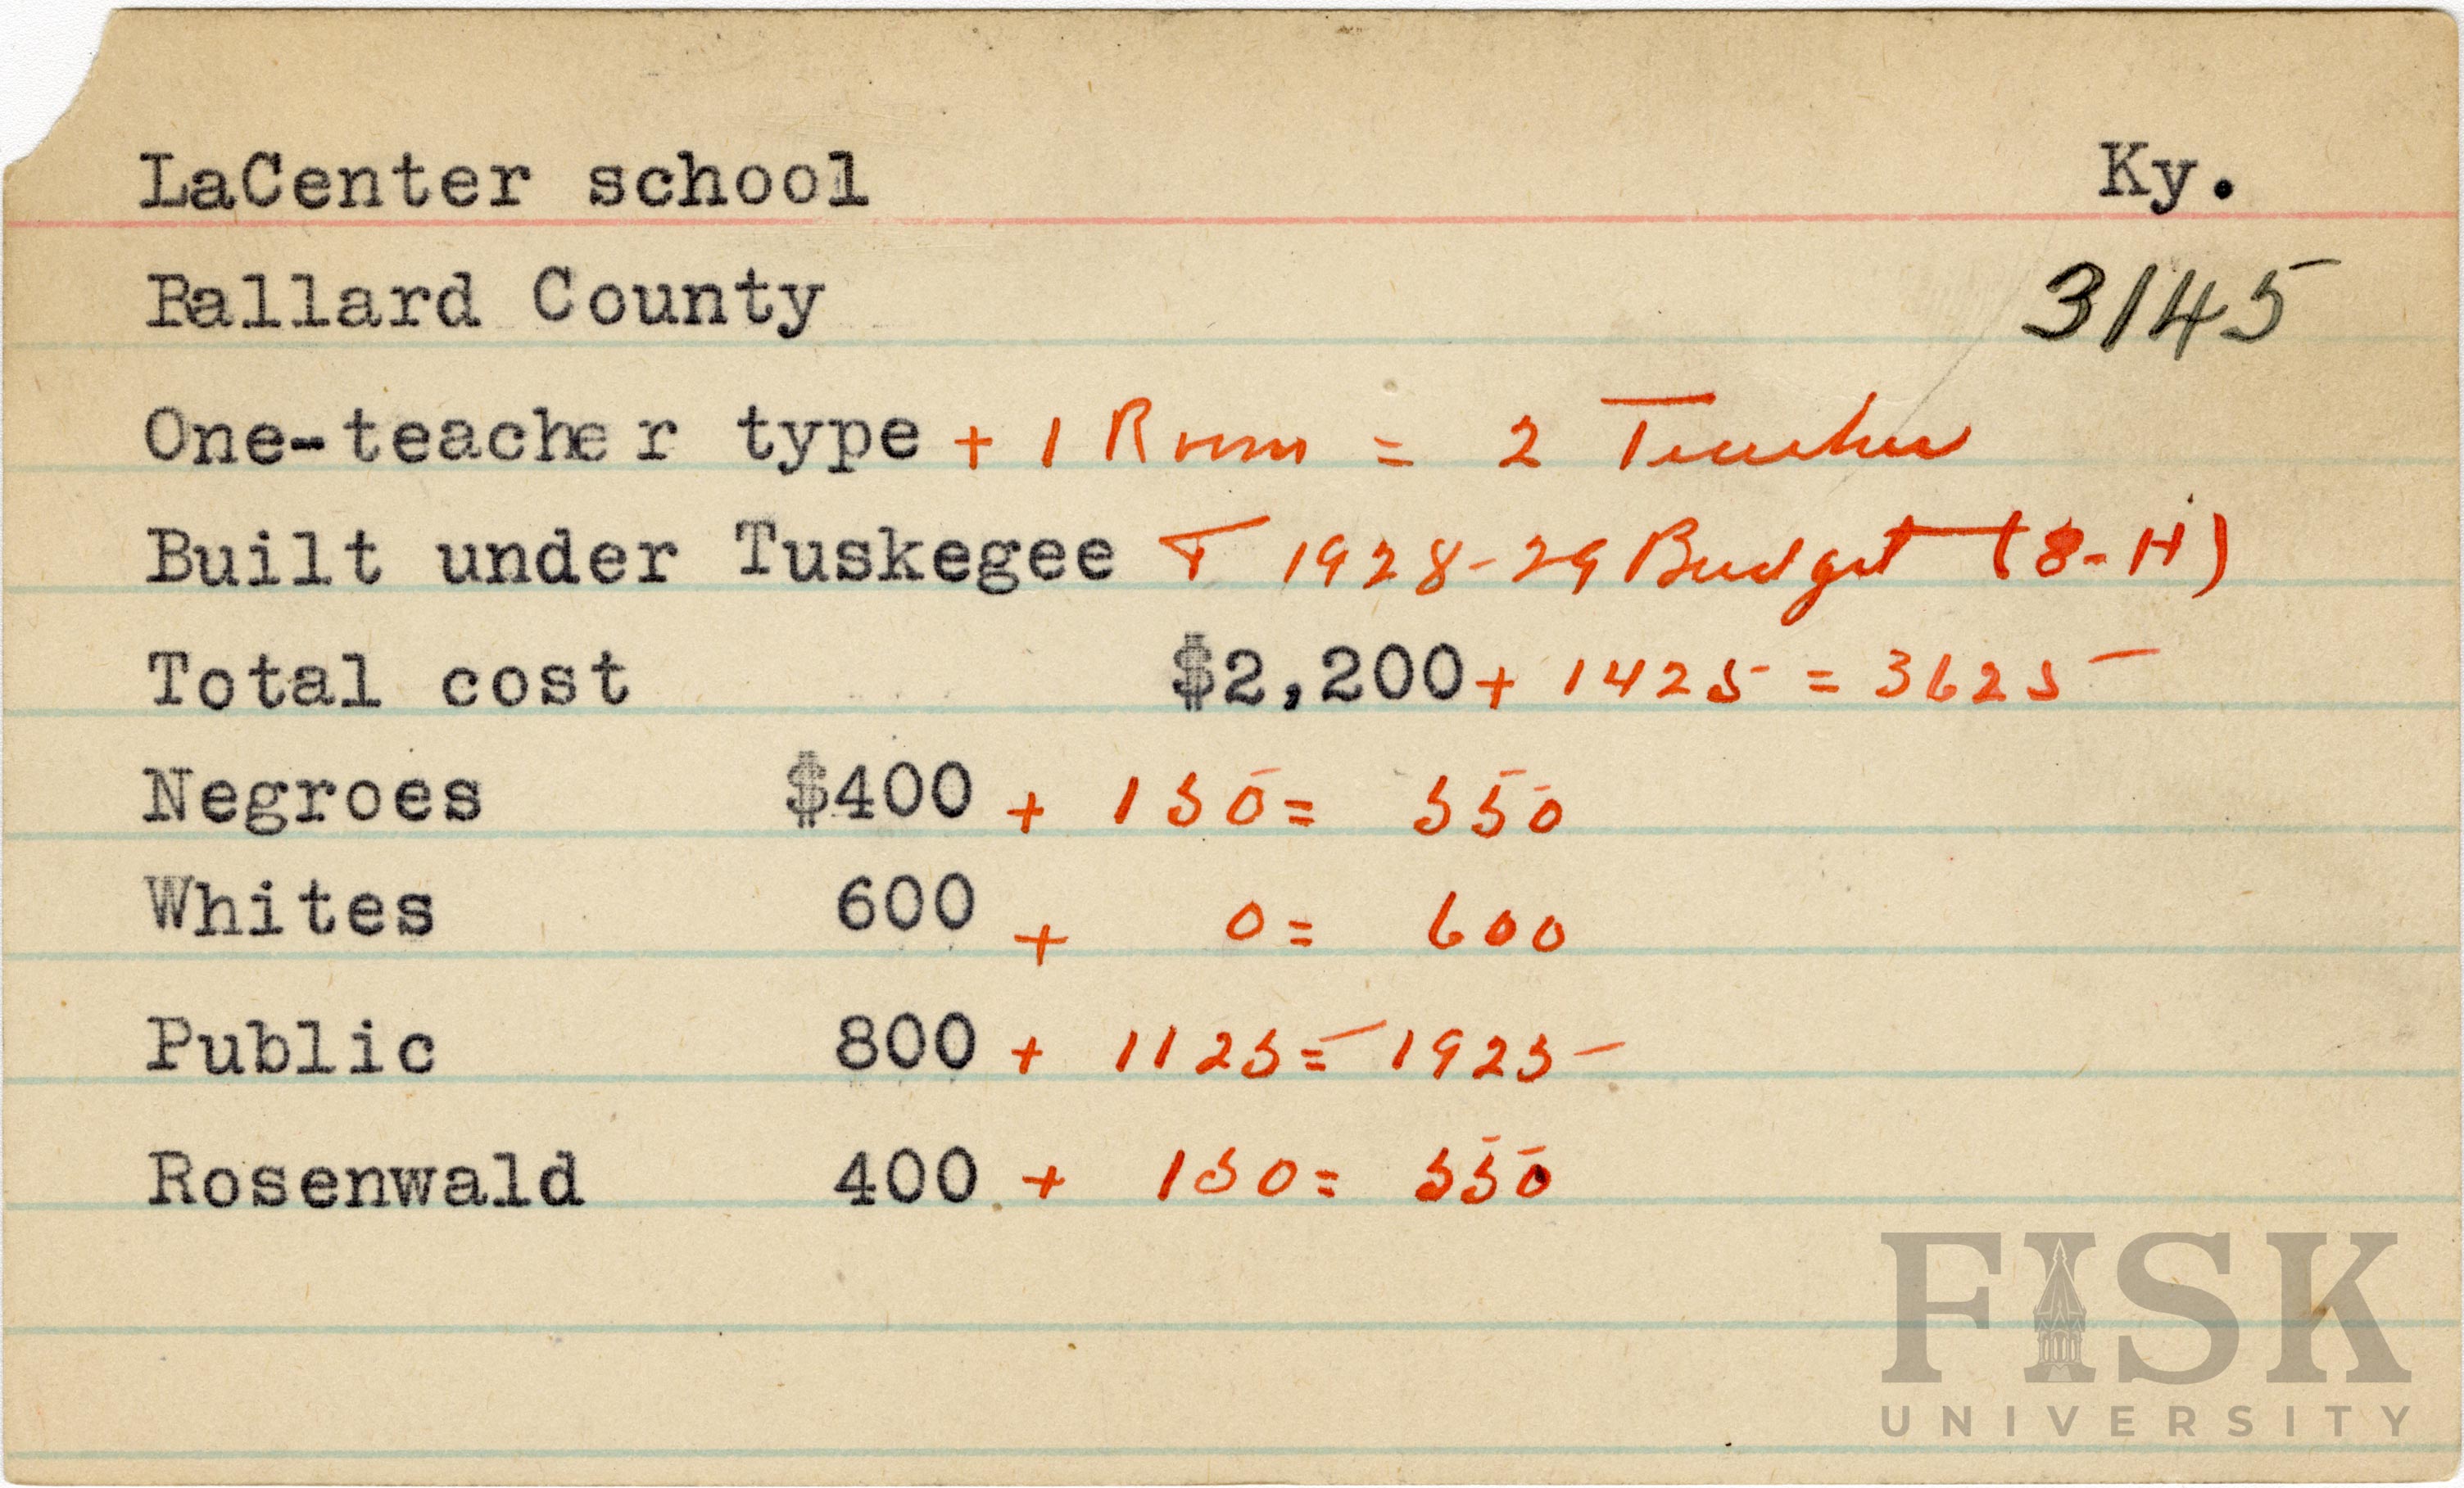 LaCenter school Ky.
Ballard County 3145
One-teacher type + 1 Room = 2 Teacher
Built under Tuskegee + 1928-29 Budget (8-H)
Total cost $2,200 + 1425 = 3625
Negroes $400 + 150 = 550
Whites 600 + 0 = 600
Public 800 + 1125 = 1925
Rosenwald 400 + 150 = 550
FISK
UNIVERSITY